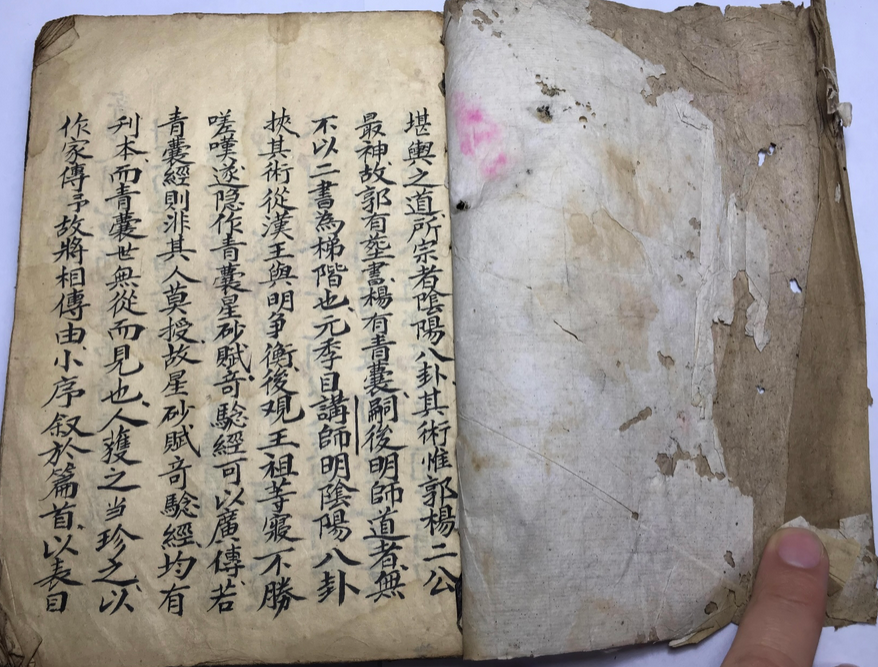 堪輿之道所宗者陰陽八卦其術惟郭楊二公
最神故郭有塟書楊有青囊嗣後明師道者無
不以二書為梯階也元季目講師明陰陽八卦
挾其術從漢王與明爭衡後覌王祖等寢不勝
嗟嘆遂隐作青囊星砂賦竒驗經可以廣傳若
青囊經則非其人莫授故星砂賦竒驗經均有
刋本而青囊世無從而見也人獲之当珍之以
作家傳予故將相傳由小序叙於篇首以表目